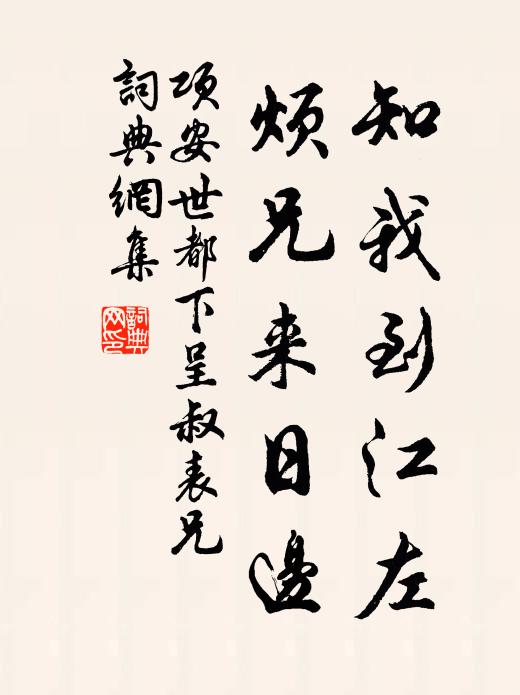 知我到江左
煩兄来日邊
項安世都下呈叔表兄
詞典網集
詞典网印